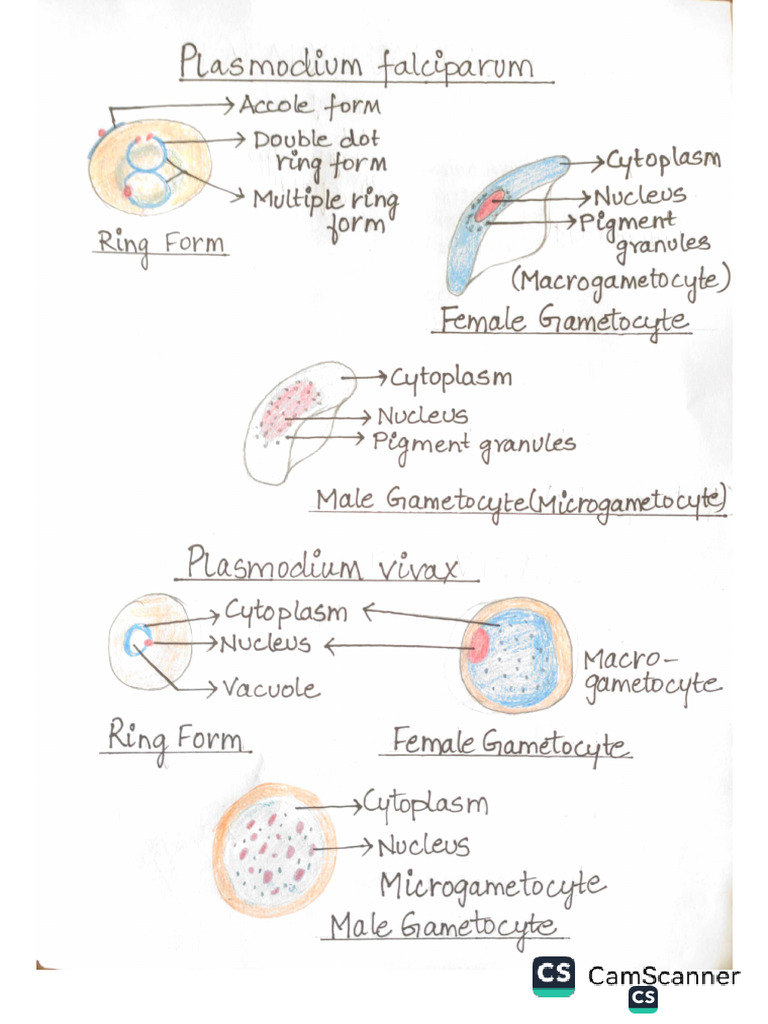 Plasmodium falciparum
Accole form
Double dot
ring form
Multiple ring
form
Ring Form
Cytoplasm
Nucleus
Pigment
granules
(Macrogametocyte)
Female Gametocyte
Cytoplasm
Nucleus
Pigment granules
Male Gametocyte (Microgametocyte)
Plasmodium vivax
Cytoplasm
Nucleus
Vacuole
Ring Form
Macro-
gametocyte
Female Gametocyte
Cytoplasm
Nucleus
Microgametocyte
Male Gametocyte
CS CamScanner
CS